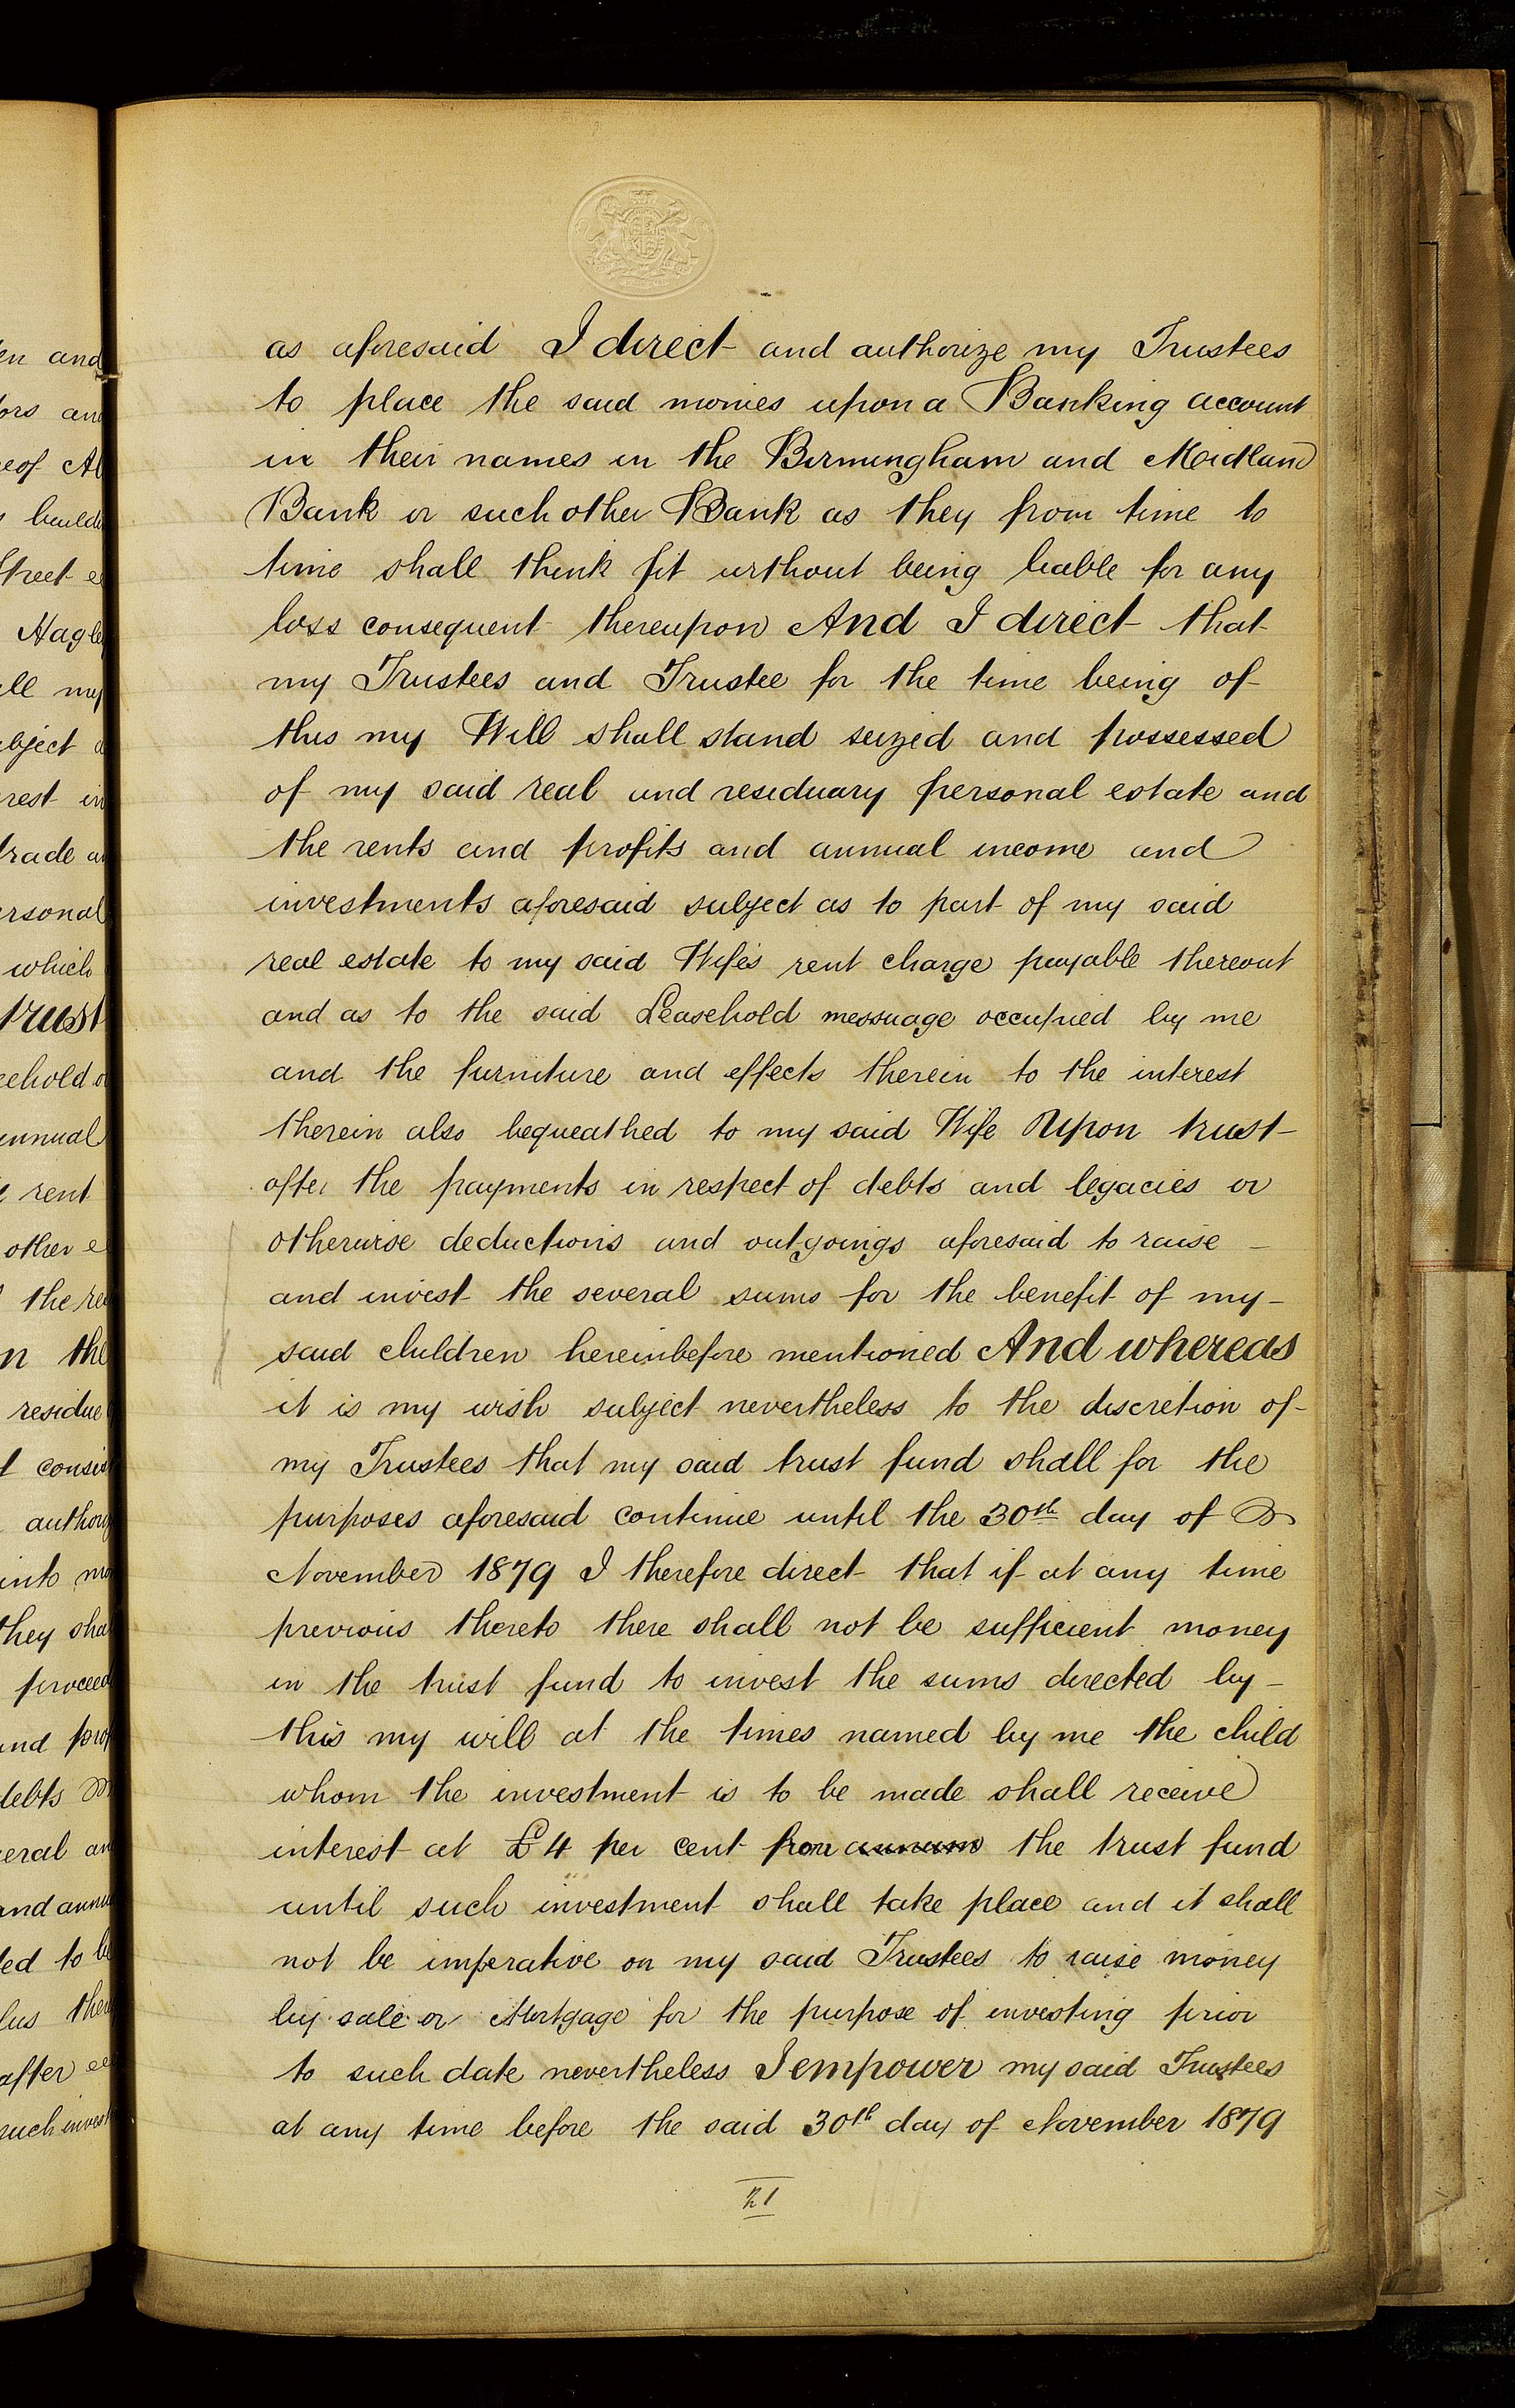 as aforesaid I direct and authorize my Trustees
to place the said monies upon a Banking account
in their names in the Birmingham and Midland
Bank or such other Bank as they from time to
time shall think fit without being liable for any
loss consequent thereupon And I direct that
my Trustees and Trustee for the time being of
this my Will shall stand seized and possessed
of my said real and residuary personal estate and
the rents and profits and annual income and
investments aforesaid subject as to part of my said
real estate to my said Wife's rent charge payable thereout
and as to the said Leasehold messuage occupied by me
and the furniture and effects therein to the interest
therein also bequeathed to my said Wife Upon trust
after the payments in respect of debts and legacies or
otherwise deductions and outgoings aforesaid to raise
and invest the several sums for the benefit of my
said children hereinbefore mentioned And whereas
it is my wish subject nevertheless to the discretion of
my Trustees that my said trust fund shall for the
purposes aforesaid continue until the 30th day of
November 1879 I therefore direct that if at any time
previous thereto there shall not be sufficient money
in the trust fund to invest the sums directed by
this my will at the times named by me the child
whom the investment is to be made shall receive
interest at £4 per cent from annum the trust fund
until such investment shall take place and it shall
not be imperative on my said Trustees to raise money
by sale or Mortgage for the purpose of investing prior
to such date nevertheless I empower my said Trustees
at any time before the said 30th day of November 1879